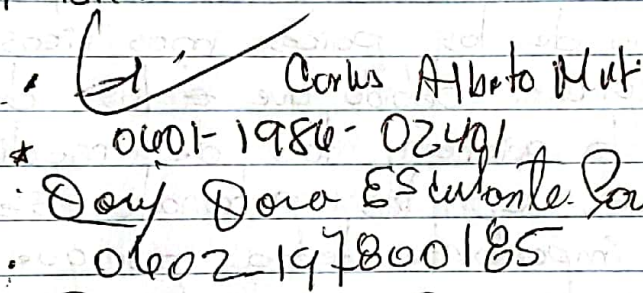 Carlos Alberto
0601-1986-02401
Dora Escalante
0602-197800185